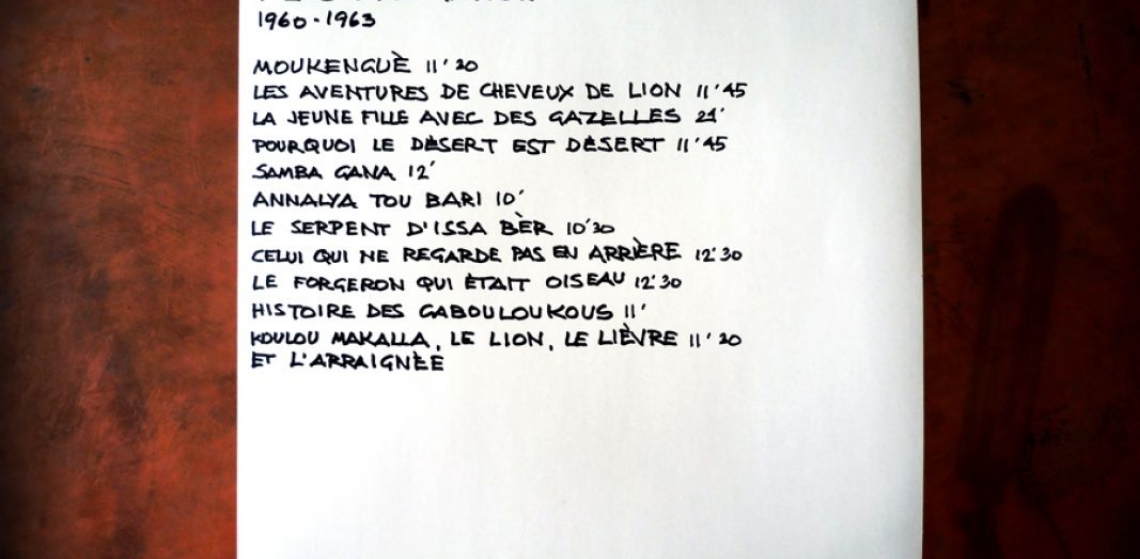 1960-1963
MOUKENGUÈ 11'20
LES AVENTURES DE CHEVEUX DE LION 11'45
LA JEUNE FILLE AVEC DES GAZELLES 21'
POURQUOI LE DÈSERT EST DÈSERT 11'45
SAMBA GANA 12'
ANNALYA TOU BARI 10'
LE SERPENT D'ISSA BÈR 10'30
CELUI QUI NE REGARDE PAS EN ARRIÈRE 12'30
LE FORGERON QUI ÈTAIT OISEAU 12'30
HISTOIRE DES GABOULOUKOUS 11'
KOULOU MAKALLA, LE LION, LE LIÈVRE 11'20
ET L'ARRAIGNÈE